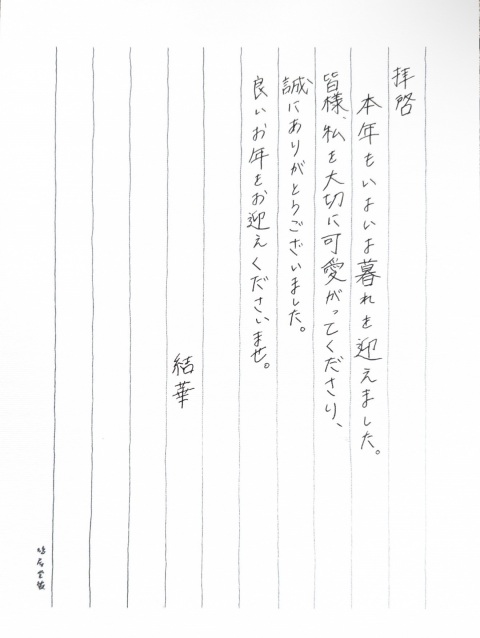 拝啓
本年もいよいよ暮れを迎えました。
皆様、私を大切に可愛がってくださり、
誠にありがとうございました。
良いお年をお迎えくださいませ。
結華